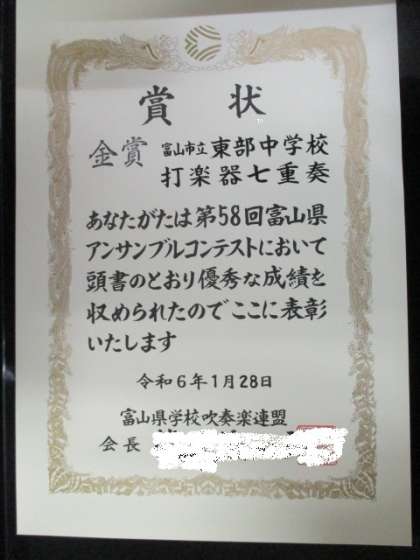 賞状
金賞 富山市立東部中学校
打楽器七重奏
あなたがたは第58回富山県
アンサンブルコンテストにおいて
頭書のとおり優秀な成績を
収められたのでここに表彰
いたします
令和6年1月28日
富山県学校吹奏楽連盟
会長